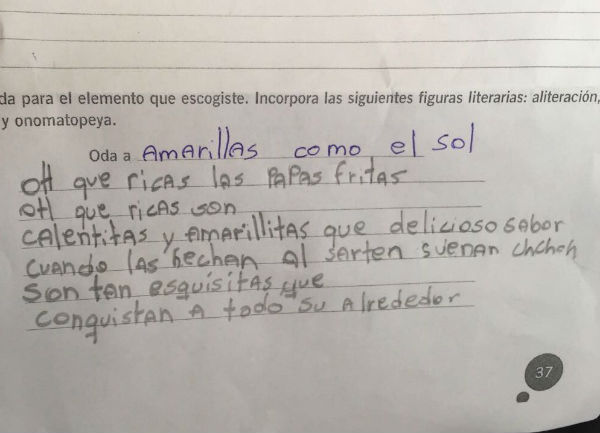 da para el elemento que escogiste. Incorpora las siguientes figuras literarias: aliteración,
y onomatopeya.
Oda a AmArillAs como el sol
oH que ricAs las PAPAs fritAs
oH que ricAs son
cAlentitAs y AmArillitAs que delicioso sAbor
cuAndo lAs hechan al sarten suenan chchch
son tan esquisitAs que
conquistAn A todo su Alrededor
37